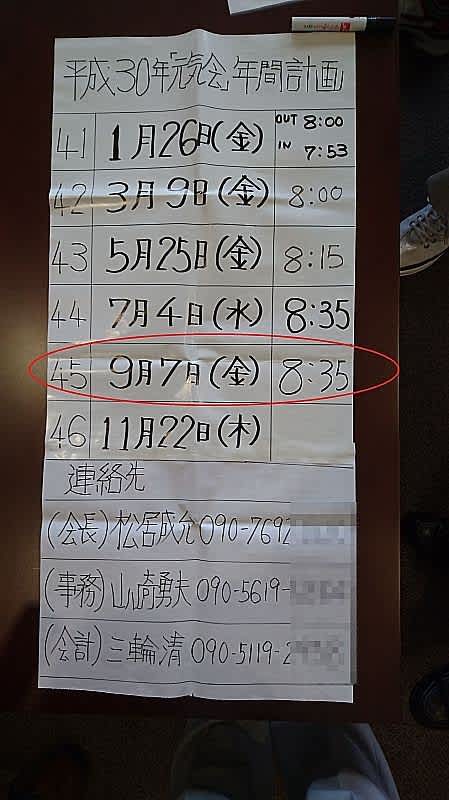 平成30年「元気会」年間計画
41 1月26日(金) OUT 8:00
IN 7:53
42 3月9日(金) 8:00
43 5月25日(金) 8:15
44 7月4日(水) 8:35
45 9月7日(金) 8:35
46 11月22日(木)
連絡先
(会長) 松居成允 090-7692
(事務) 山崎勇夫 090-5619-
(会計) 三輪清 090-5119-2